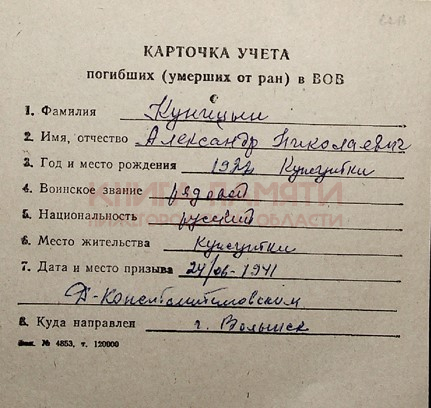 КАРТОЧКА УЧЕТА
погибших (умерших от ран) в ВОВ
1. Фамилия Куницын
2. Имя, отчество Александр Николаевич
3. Год и место рождения 1922
4. Воинское звание рядовой
КНИГА ПАМЯТИ
5. Национальность русский
НИЖЕГОРОДСКОЙ ОБЛАСТИ
6. Место жительства
7. Дата и место призыва 24/06-1941
Д-Константиновским
8. Куда направлен г.
Зак. № 4853, т. 120000